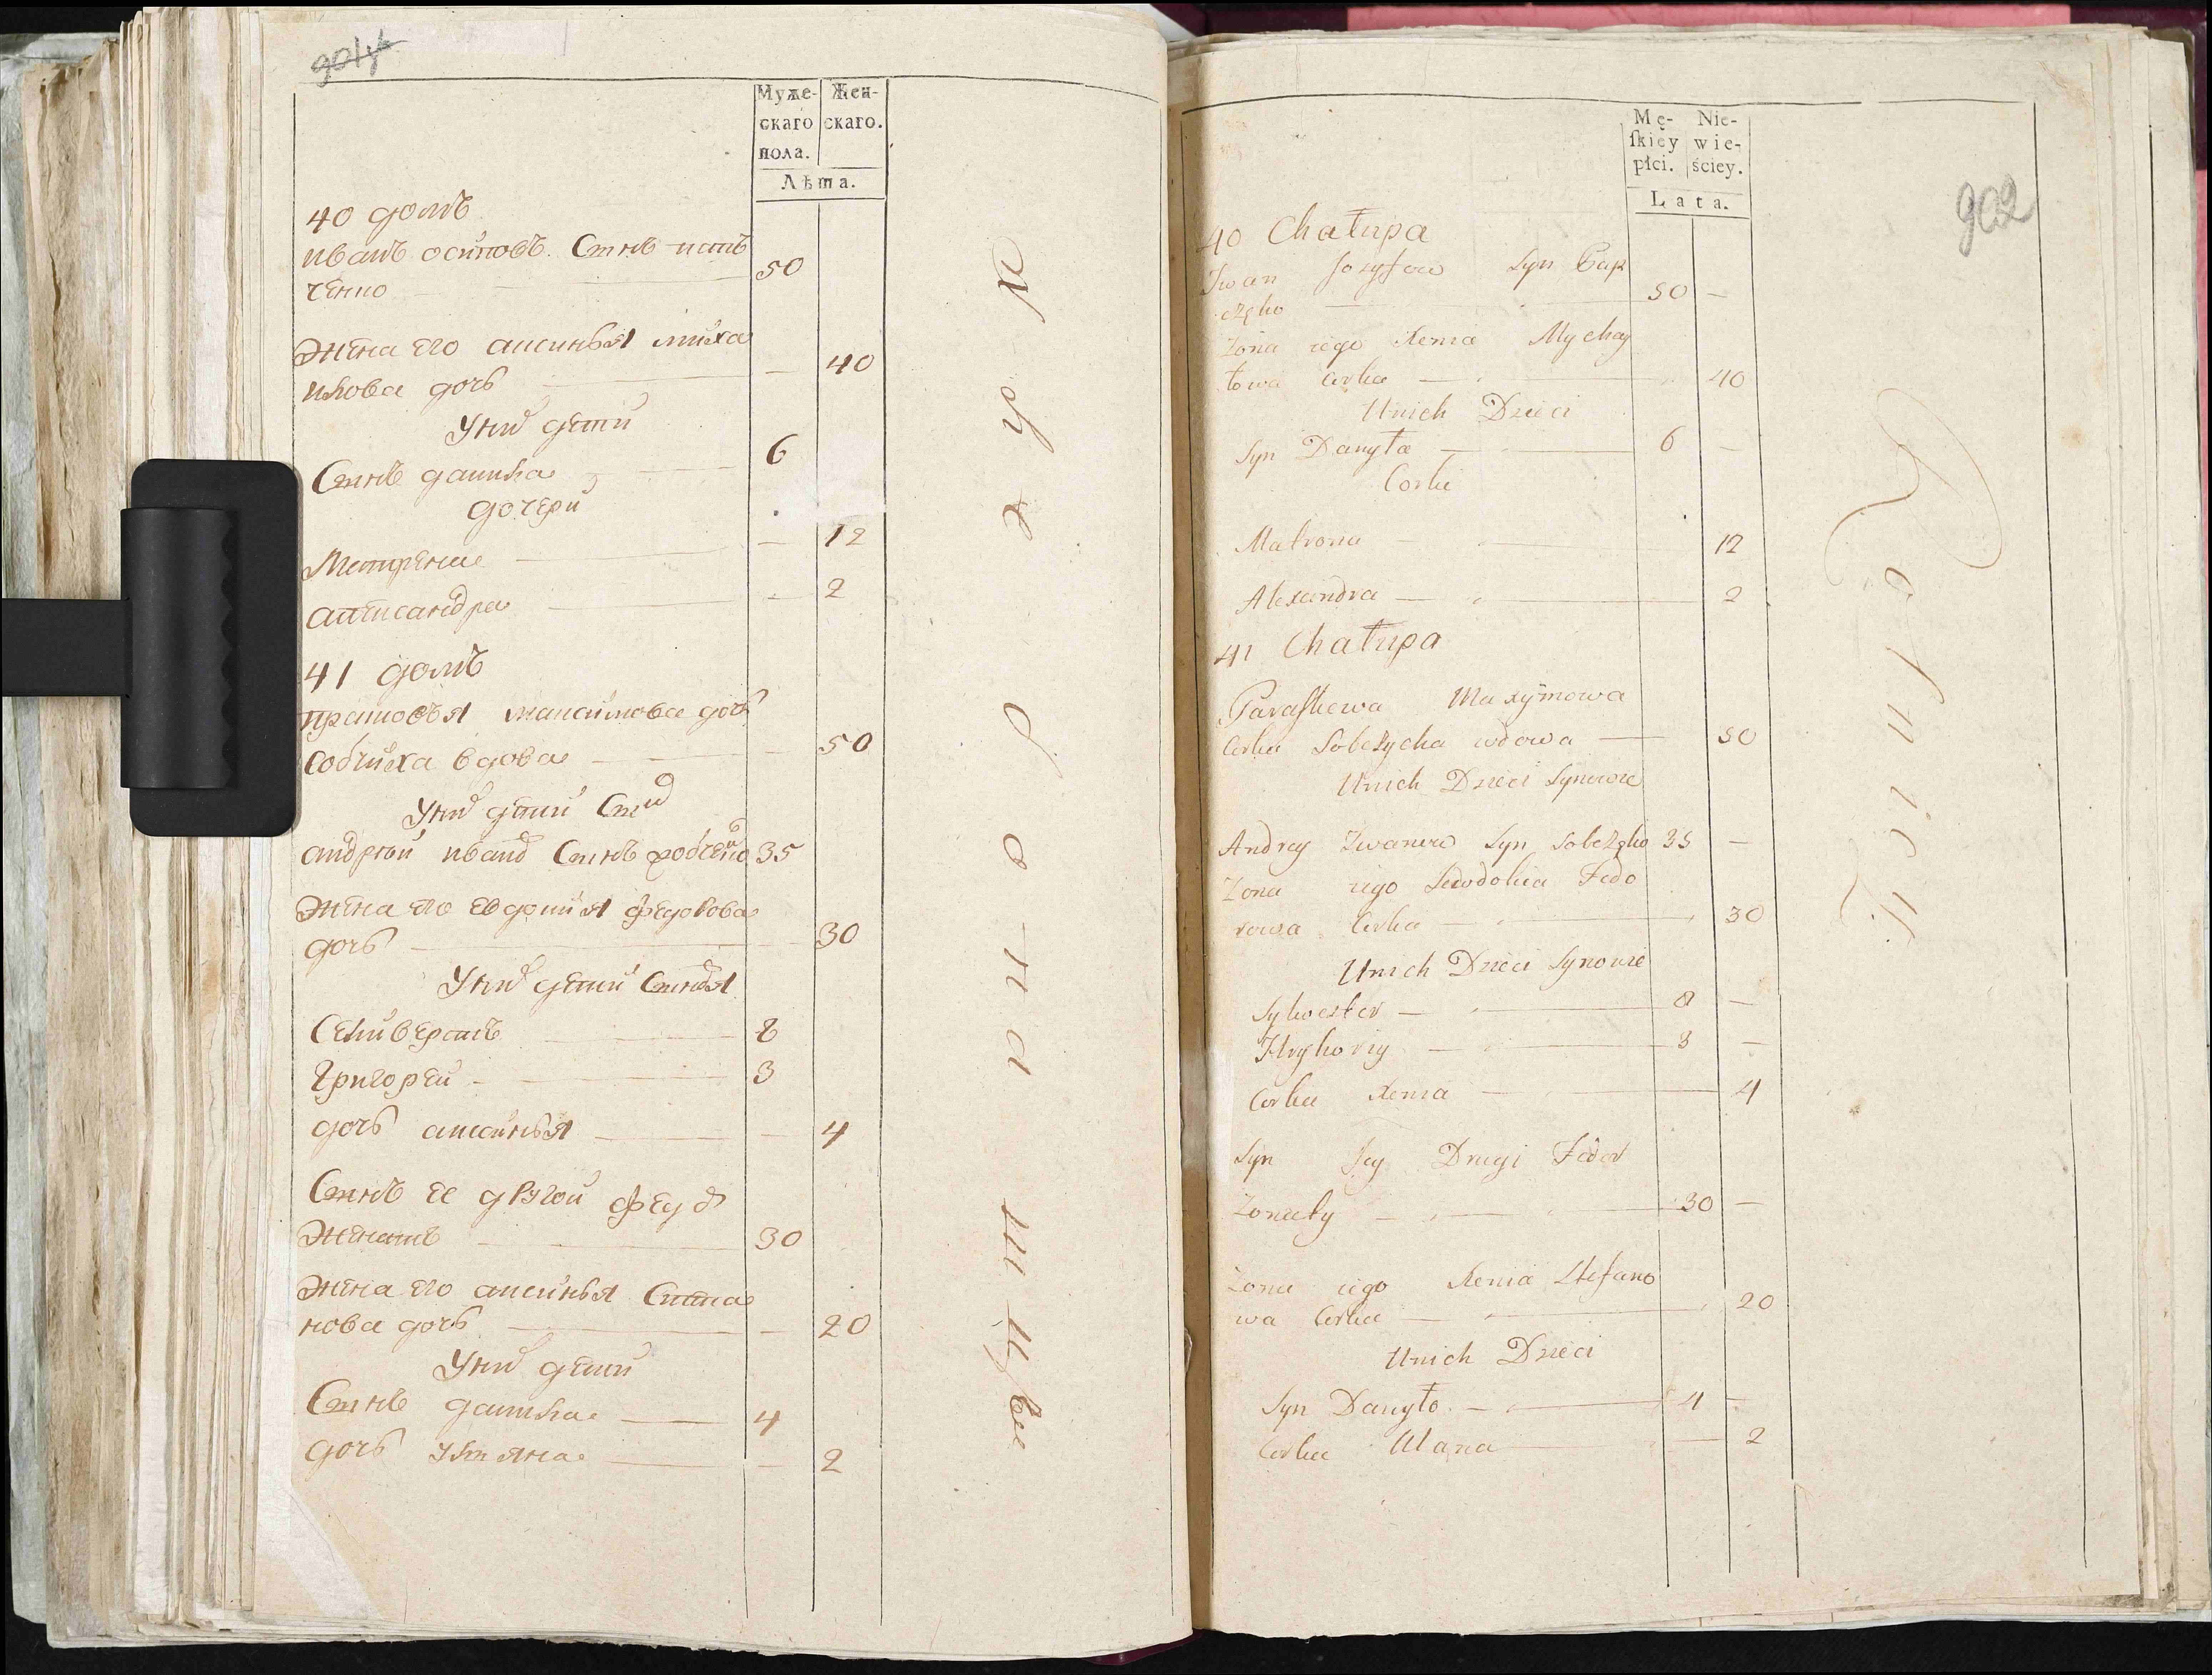 Муже-
скаго
пола.
Жен-
скаго.
Лѣта.
40 домъ
иванъ осиповъ. Сынъ
ченко 50
жена его аксинья михаи
лова дочь — 40
У них дети
Сынъ данила 6
дочери
Матрена — 12
александра — 2
41 домъ
прасковья максимова дочь
собчиха вдова — 50
У них дети
андрей иванов Сынъ собченко 35
жена его евдокия федорова
дочь — 30
У них дети Сыновья
Селиверстъ 8
Григорей 3
дочь аксинья — 4
Сынъ ее другой федор
женатъ 30
жена его аксинья Степа
нова дочь — 20
У них дети
Сынъ данила 4
дочь ульяна — 2
902
Mę-
ſkiey
płci.
Nie-
wie-
ściey.
Lata.
40 Chałupa
Iwan Jozyfow Syn
częko 50 —
Zona iego Xenia Mychay
łowa Corka 40
Unich Dzieci
Syn Danyła 6 —
Corki
Matrona 12
Alexandra 2
41 Chałupa
Paraſkewa Maxymowa
Corka Sobczycha wdowa 50
Unich Dzieci Synowie
Andrey Iwanow Syn Sobczęko 35 —
Zona iego Fedo
rowa Corka 30
Unich Dzieci Synowie
Sylwester 8 —
Hryhoriy 3 —
Corka Xenia 4
Syn Jey Drugi Fedor
Zonaty 30 —
Zona iego Xenia Stefano
wa Corka 20
Unich Dzieci
Syn Danyło 4 —
Corka Ulana — 2